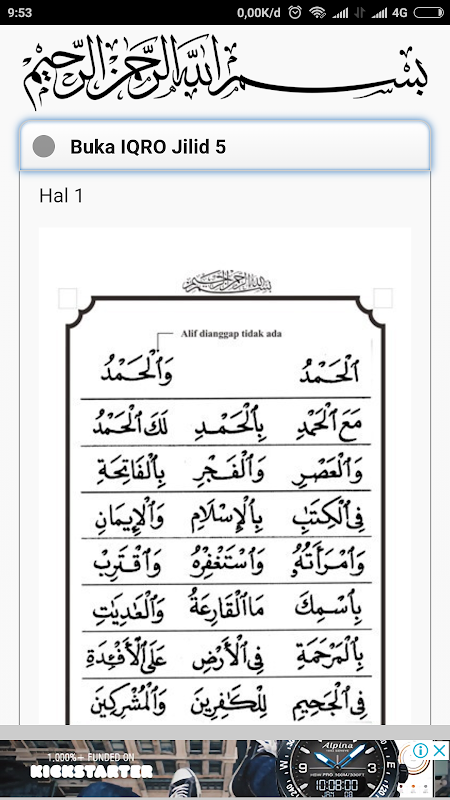 9:53 0,00K/d 4G
بسم الله الرحمن الرحيم
Buka IQRO Jilid 5
Hal 1
بسم الله الرحمن الرحيم
Alif dianggap tidak ada
اَلْحَمْدُ وَٱلْحَمْدُ
مَعَ ٱلْحَمْدِ بِٱلْحَمْدِ لَكَ ٱلْحَمْدُ
وَٱلْعَصْرِ وَٱلْفَجْرِ بِٱلْفَاتِحَةِ
فِى ٱلْكِتَٰبِ بِٱلْإِسْلَامِ وَٱلْإِيمَانِ
وَٱمْرَأَتُهُۥ وَٱسْتَغْفِرْهُ وَٱقْتَرِبْ
بِٱسْمِكَ مَا ٱلْقَارِعَةُ وَٱلْعَٰدِيَٰتِ
بِٱلْمَرْحَمَةِ فِى ٱلْأَرْضِ عَلَى ٱلْأَفْئِدَةِ
فِى ٱلْجَحِيمِ لِلْكَٰفِرِينَ وَٱلْمُشْرِكِينَ
1,000%+ FUNDED ON
KICKSTARTER
Alpina
10:08:00